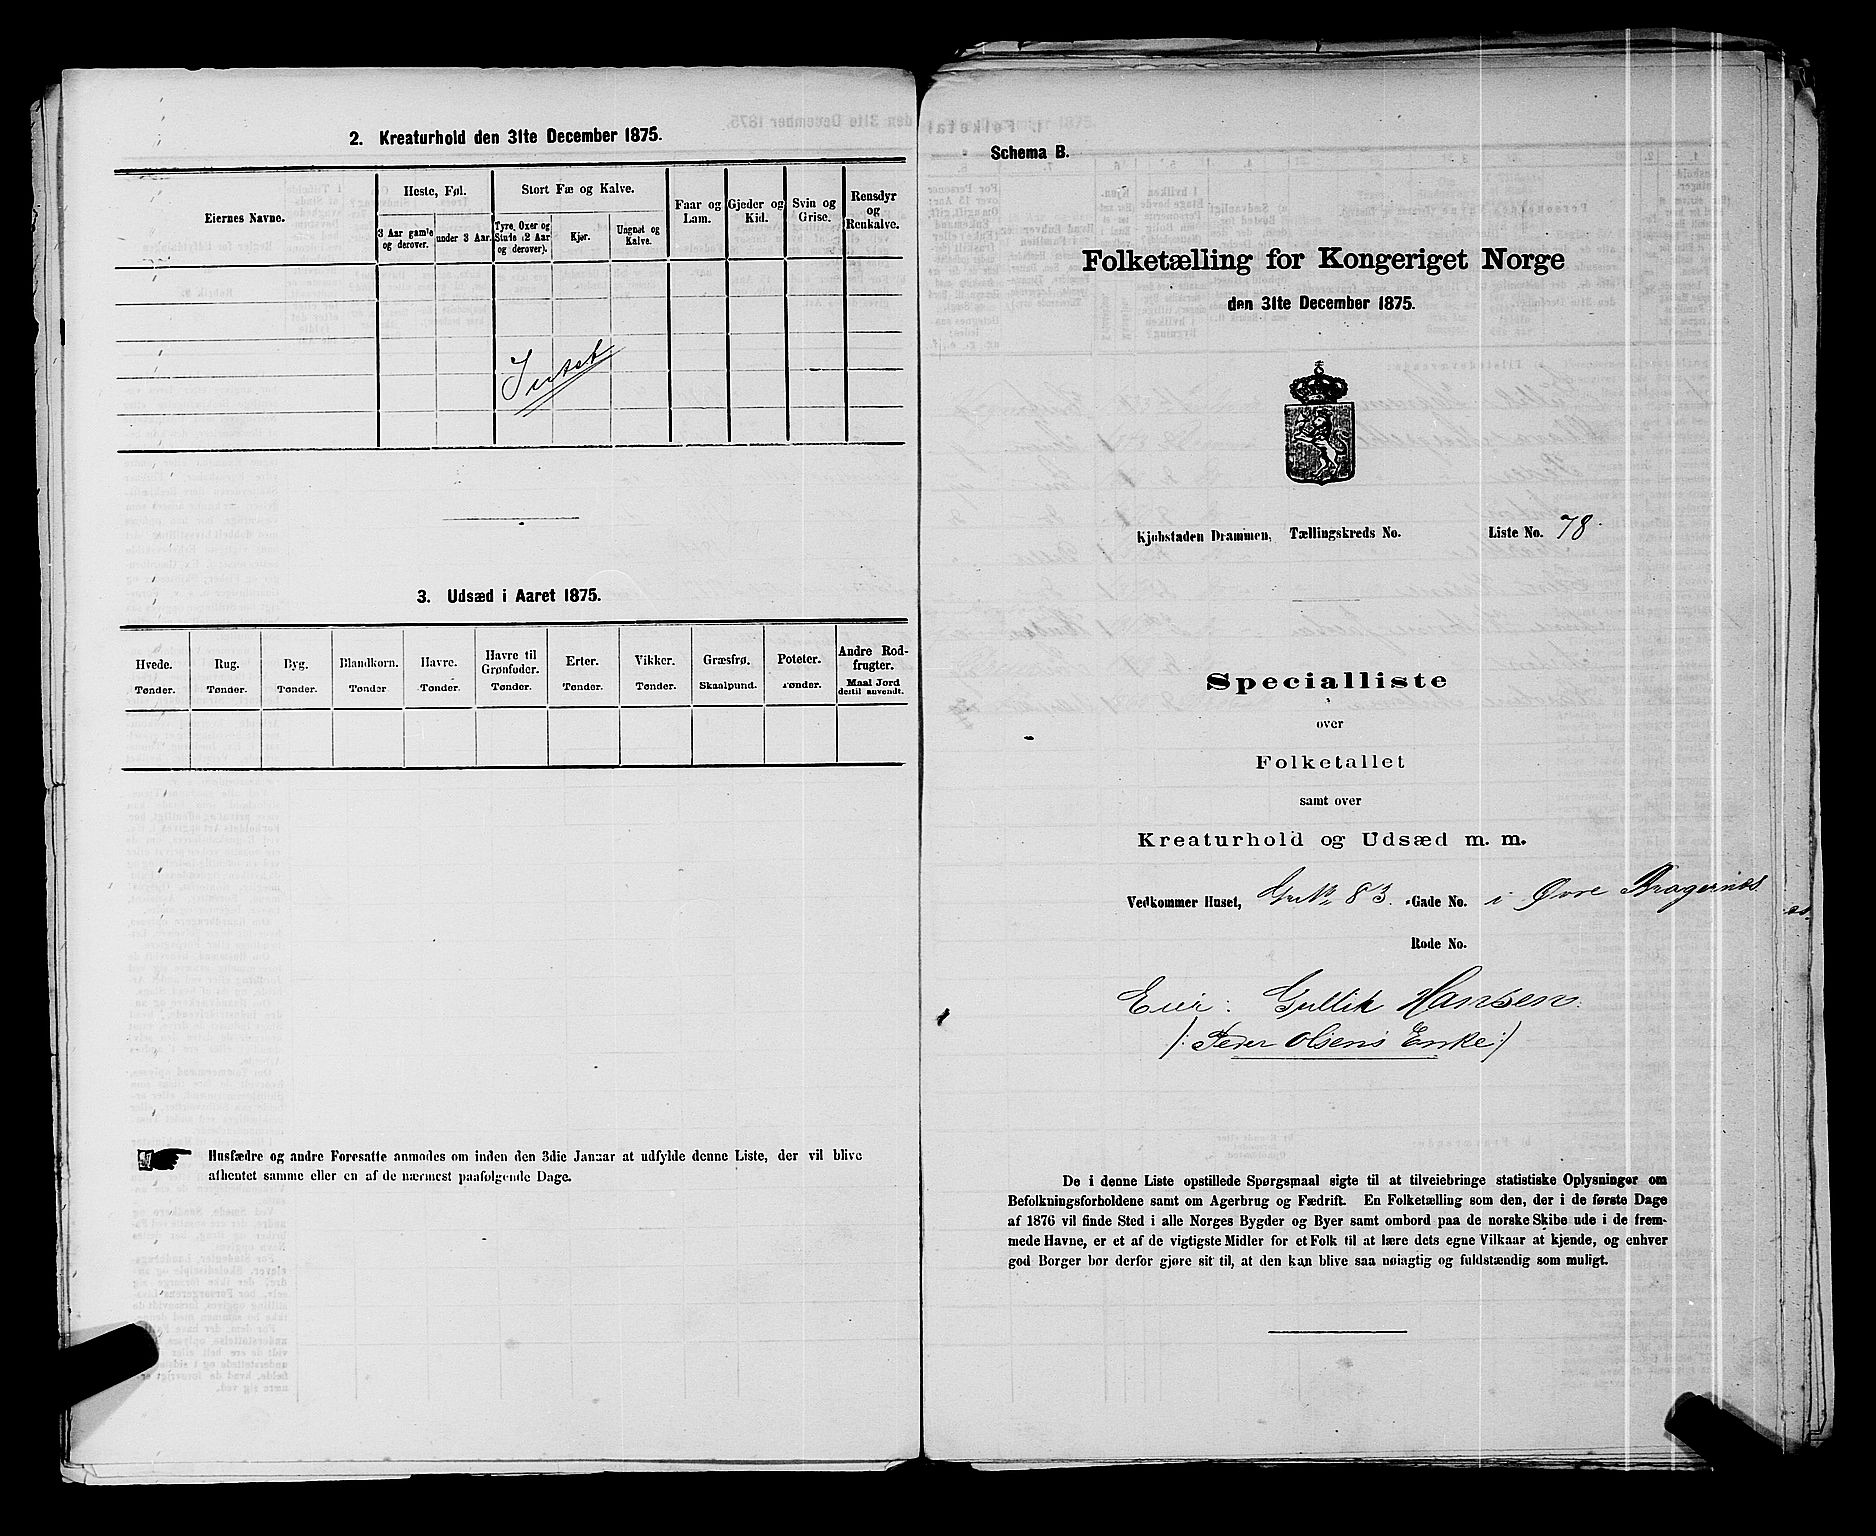 2. Kreaturhold den 31te December 1875.
Eiernes Navne.
Heste, Føl.
3 Aar gamle og derover.
under 3 Aar.
Stort Fæ og Kalve.
Tyre, Oxer og Stude (2 Aar og derover).
Kjør.
Ungnøt og Kalve.
Faar og Lam.
Gjeder og Kid.
Svin og Grise.
Rensdyr og Renkalve.
Intet
3. Udsæd i Aaret 1875.
Hvede. Tønder.
Rug. Tønder.
Byg. Tønder.
Blandkorn. Tønder.
Havre. Tønder.
Havre til Grønfoder. Tønder.
Erter. Tønder.
Vikker. Tønder.
Græsfrø. Skaalpund.
Poteter. Tønder.
Andre Rodfrugter. Maal Jord dertil anvendt.
Husfædre og andre Foresatte anmodes om inden den 3die Januar at udfylde denne Liste, der vil blive
afhentet samme eller en af de nærmest paafølgende Dage.
Schema B.
Folketælling for Kongeriget Norge
den 31te December 1875.
Kjøbstaden Drammen, Tællingskreds No. Liste No. 78.
Specialliste
over
Folketallet
samt over
Kreaturhold og Udsæd m. m.
Vedkommer Huset, Gr№ 83. Gade No. i Øvre Bragernæs
Rode No.
Eier: Gullik Hansen
/: Peder Olsens Enke :/
De i denne Liste opstillede Spørgsmaal sigte til at tilveiebringe statistiske Oplysninger om
Befolkningsforholdene samt om Agerbrug og Fædrift. En Folketælling som den, der i de første Dage
af 1876 vil finde Sted i alle Norges Bygder og Byer samt ombord paa de norske Skibe ude i de frem-
mede Havne, er et af de vigtigste Midler for et Folk til at lære dets egne Vilkaar at kjende, og enhver
god Borger bør derfor gjøre sit til, at den kan blive saa nøiagtig og fuldstændig som muligt.